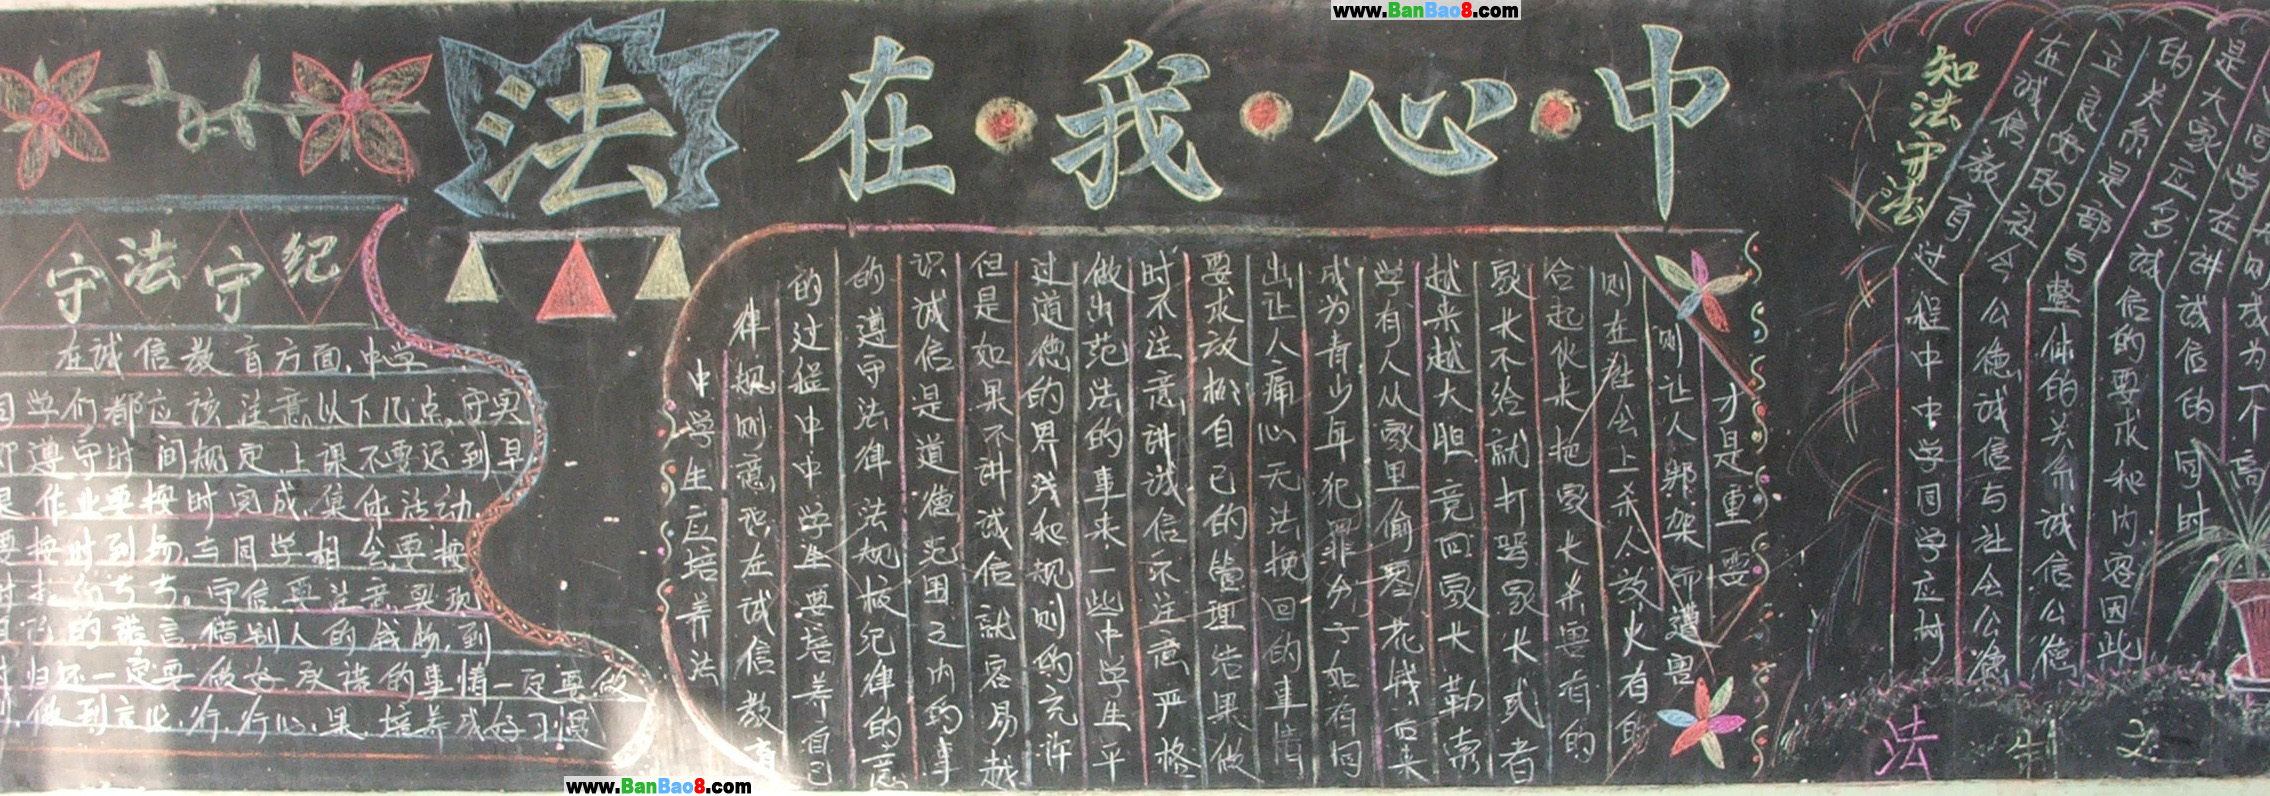 www.BanBao8.com
法在我心中
守法守纪
在诚信教育方面,中学
同学们都应该注意以下几点。守实
即遵守时间规定上课不要迟到早
退作业要按时完成,集体活动
要按时到场,与同学相会要按
守信要注意实现
自己的诺言,借别人的钱物,到
时归还一定要做好,承诺的事情一定要做
到,做到言必行,行必果,培养成好习惯
中学生应培养法
律规则意识在诚信教育
的过程中中学生要培养自己
的遵守法律法规校纪律的意
识诚信是道德范围之内的事
但是如果不讲诚信就容易越
过道德的界线和规则的充许
做出范法的事来一些中学生平
时不注意讲诚信不注意严格
要求放松自己的管理结果做
出让人痛心无法挽回的事情
成为青少年犯罪分子如有同
学有人从家里偷零花钱后来
越来越大胆竟回家长勒索
家长不给就打骂家长或者
合起伙来把家长杀害有的
则在社会上杀人放火有的
则让人绑架而遭害
才是重要
知法守法
在诚信教育过程中中学同学应树
立良好的社会公德诚信与社会公德
的关系是部与整体的关系诚信公德
是大家应多诚信的要求和内容因此
同学在讲诚信的同时
成为不高
法制
www.BanBao8.com